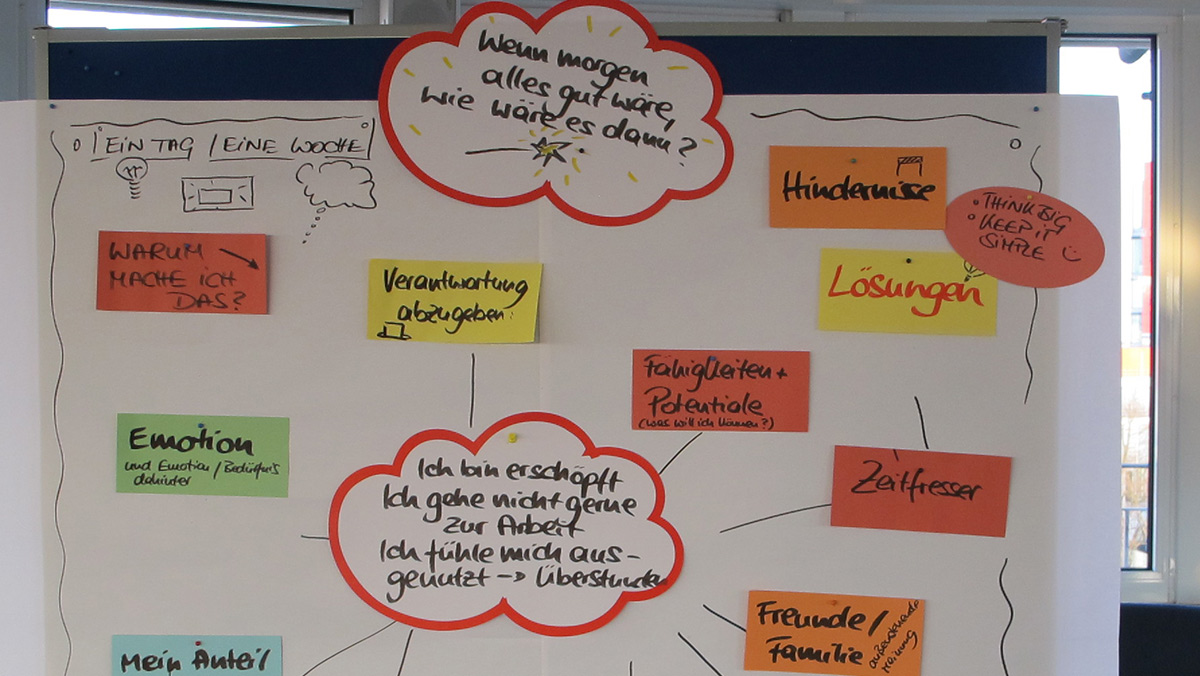 Wenn morgen
alles gut wäre,
wie wäre es dann?
EIN TAG / EINE WOCHE
Hindernisse
• THINK BIG
• KEEP IT
SIMPLE
WARUM
MACHE ICH
DAS?
Verantwortung
abzugeben.
Lösungen
Fähigkeiten +
Potentiale
(was will ich können?)
Emotion
und Emotion / Bedürfnis
dahinter
Ich bin erschöpft
Ich gehe nicht gerne
zur Arbeit
Ich fühle mich aus-
genutzt → Überstunden
Zeitfresser
Freunde/
Familie
Meinung
Mein Anteil